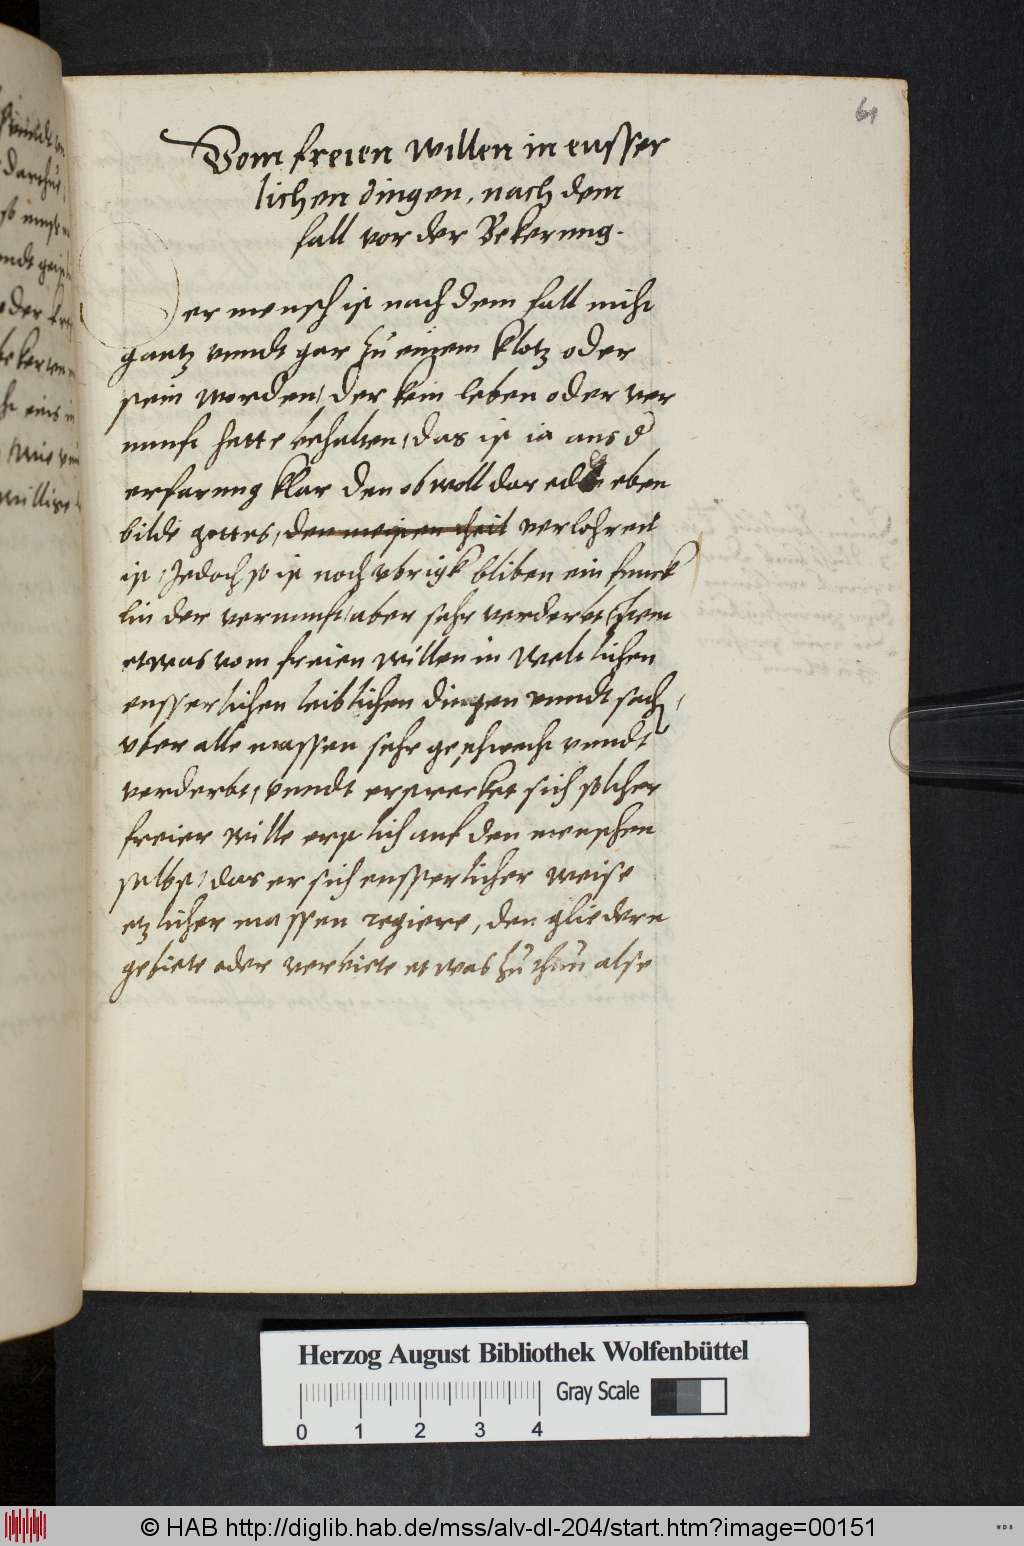 61
Vom freien willen in eusser
lichen dingen, nach dem
fall vor der Bekerung.
Der mensch ist nach dem fall nicht
gantz unndt gar zu einem klotz oder
stein worden, der kein leben oder ver
nunft hette behalten, das ist ia aus d
erfarung klar den ob woll dar edle eben
bilde gottes, den meisten theil verlohren
ist, Jedoch so ist noch vbrigk bliben ein funck
lin der vernunft, aber sehr verderbt, Item
etwas vom freien willen in weltlichen
eusserlichen leiblichen dingen unndt sach,
vber alle massen sehr geschwecht unndt
verderbt, unndt erstrecket sich solcher
freier wille erstlich auf den menschen
selbst, das er sich eusserlicher weise
etzlicher massen regiere, den gliedern
gebiete oder verbiete etwas zu thun alse
Herzog August Bibliothek Wolfenbüttel
Gray Scale
0 1 2 3 4
© HAB http://diglib.hab.de/mss/alv-dl-204/start.htm?image=00151